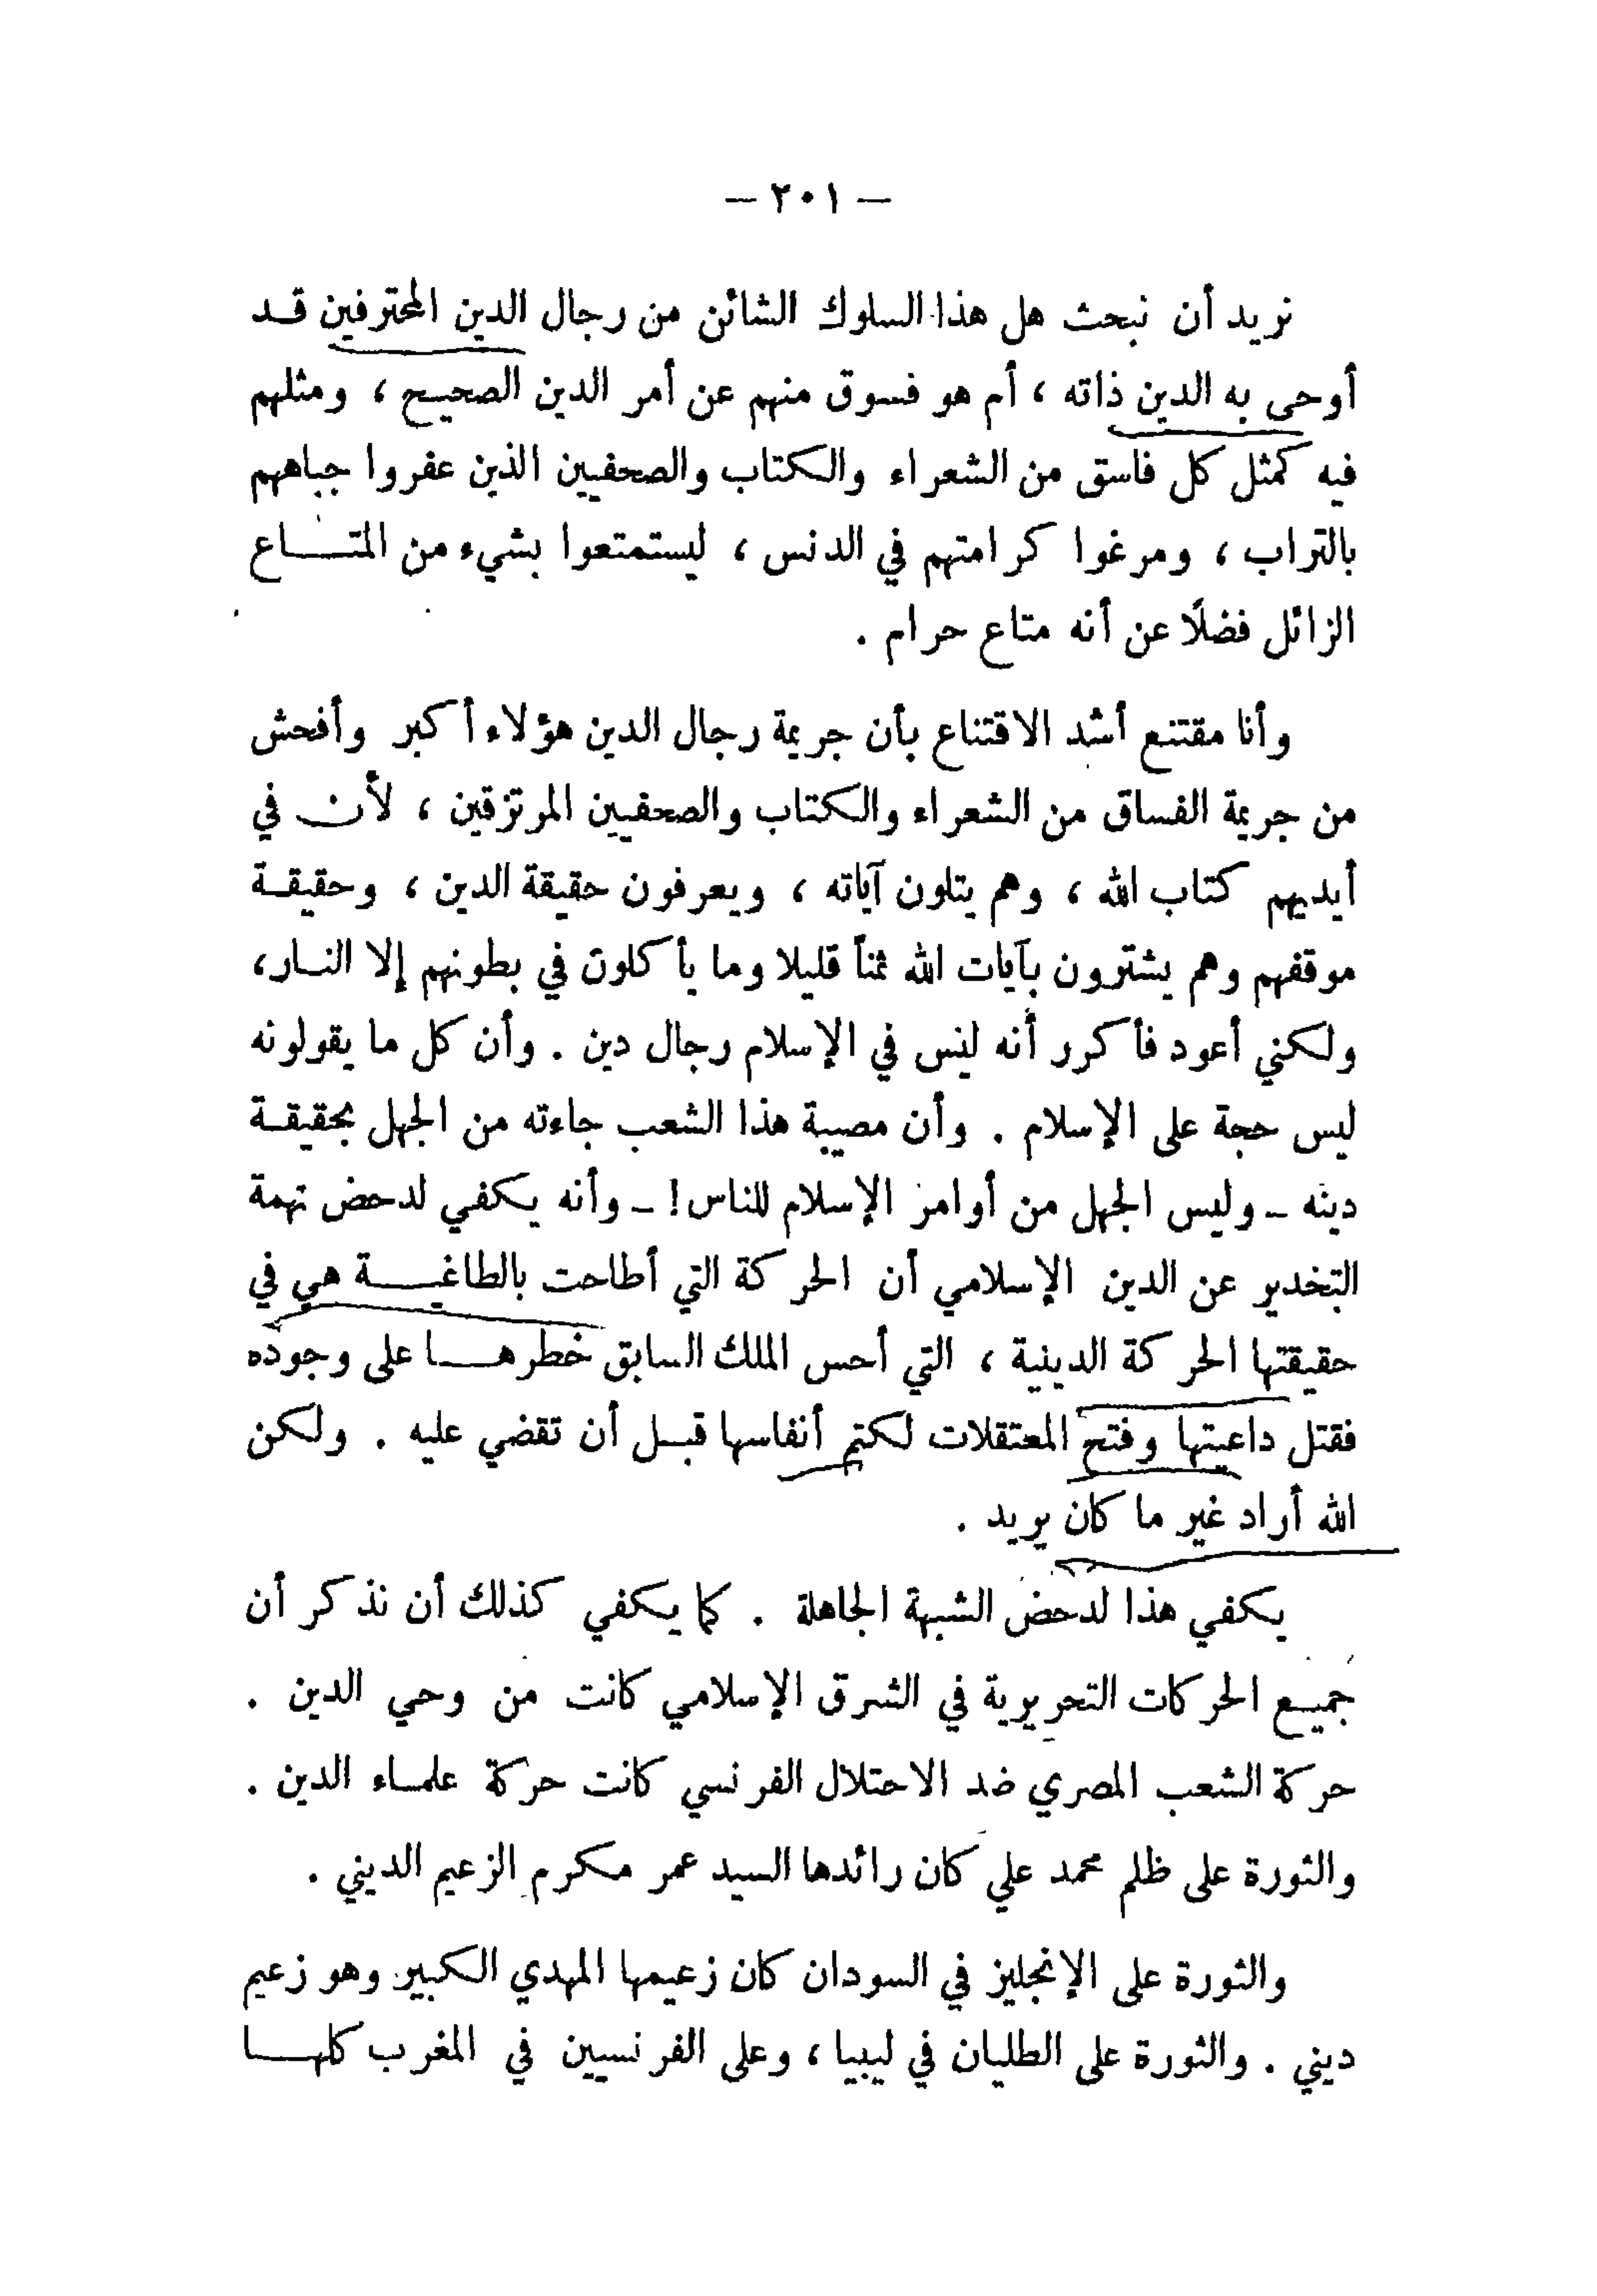 — ٢٠١ —
نريد أن نبحث هل هذا السلوك الشائن من رجال الدين المحترفين قد
أوحى به الدين ذاته ، أم هو فسوق منهم عن أمر الدين الصحيح ، ومثلهم
فيه كمثل كل فاسق من الشعراء والكتاب والصحفيين الذين عفروا جباههم
بالتراب ، ومرغوا كرامتهم في الدنس ، ليستمتعوا بشيء من المتاع
الزائل فضلًا عن أنه متاع حرام .
وأنا مقتنع أشد الاقتناع بأن جريمة رجال الدين هؤلاء أكبر وأفحش
من جريمة الفساق من الشعراء والكتاب والصحفيين المرتزقين ، لأن في
أيديهم كتاب الله ، وهم يتلون آياته ، ويعرفون حقيقة الدين ، وحقيقة
موقفهم وهم يشترون بآيات الله ثمناً قليلا وما يأكلون في بطونهم إلا النار،
ولكني أعود فأكرر أنه ليس في الإسلام رجال دين . وأن كل ما يقولونه
ليس حجة على الإسلام . وأن مصيبة هذا الشعب جاءته من الجهل بحقيقة
دينه ـ وليس الجهل من أوامر الإسلام للناس! ـ وأنه يكفي لدحض تهمة
التخدير عن الدين الإسلامي أن الحركة التي أطاحت بالطاغية هي في
حقيقتها الحركة الدينية ، التي أحس الملك السابق خطرها على وجوده
فقتل داعيتها وفتح المعتقلات لكتم أنفاسها قبل أن تقضي عليه . ولكن
الله أراد غير ما كان يريد .
يكفي هذا لدحض الشبهة الجاهلة . كما يكفي كذلك أن نذكر أن
جميع الحركات التحريرية في الشرق الإسلامي كانت من وحي الدين .
حركة الشعب المصري ضد الاحتلال الفرنسي كانت حركة علماء الدين .
والثورة على ظلم محمد علي كان رائدها السيد عمر مكرم الزعيم الديني .
والثورة على الإنجليز في السودان كان زعيمها المهدي الكبير وهو زعيم
ديني . والثورة على الطليان في ليبيا ، وعلى الفرنسيين في المغرب كلها